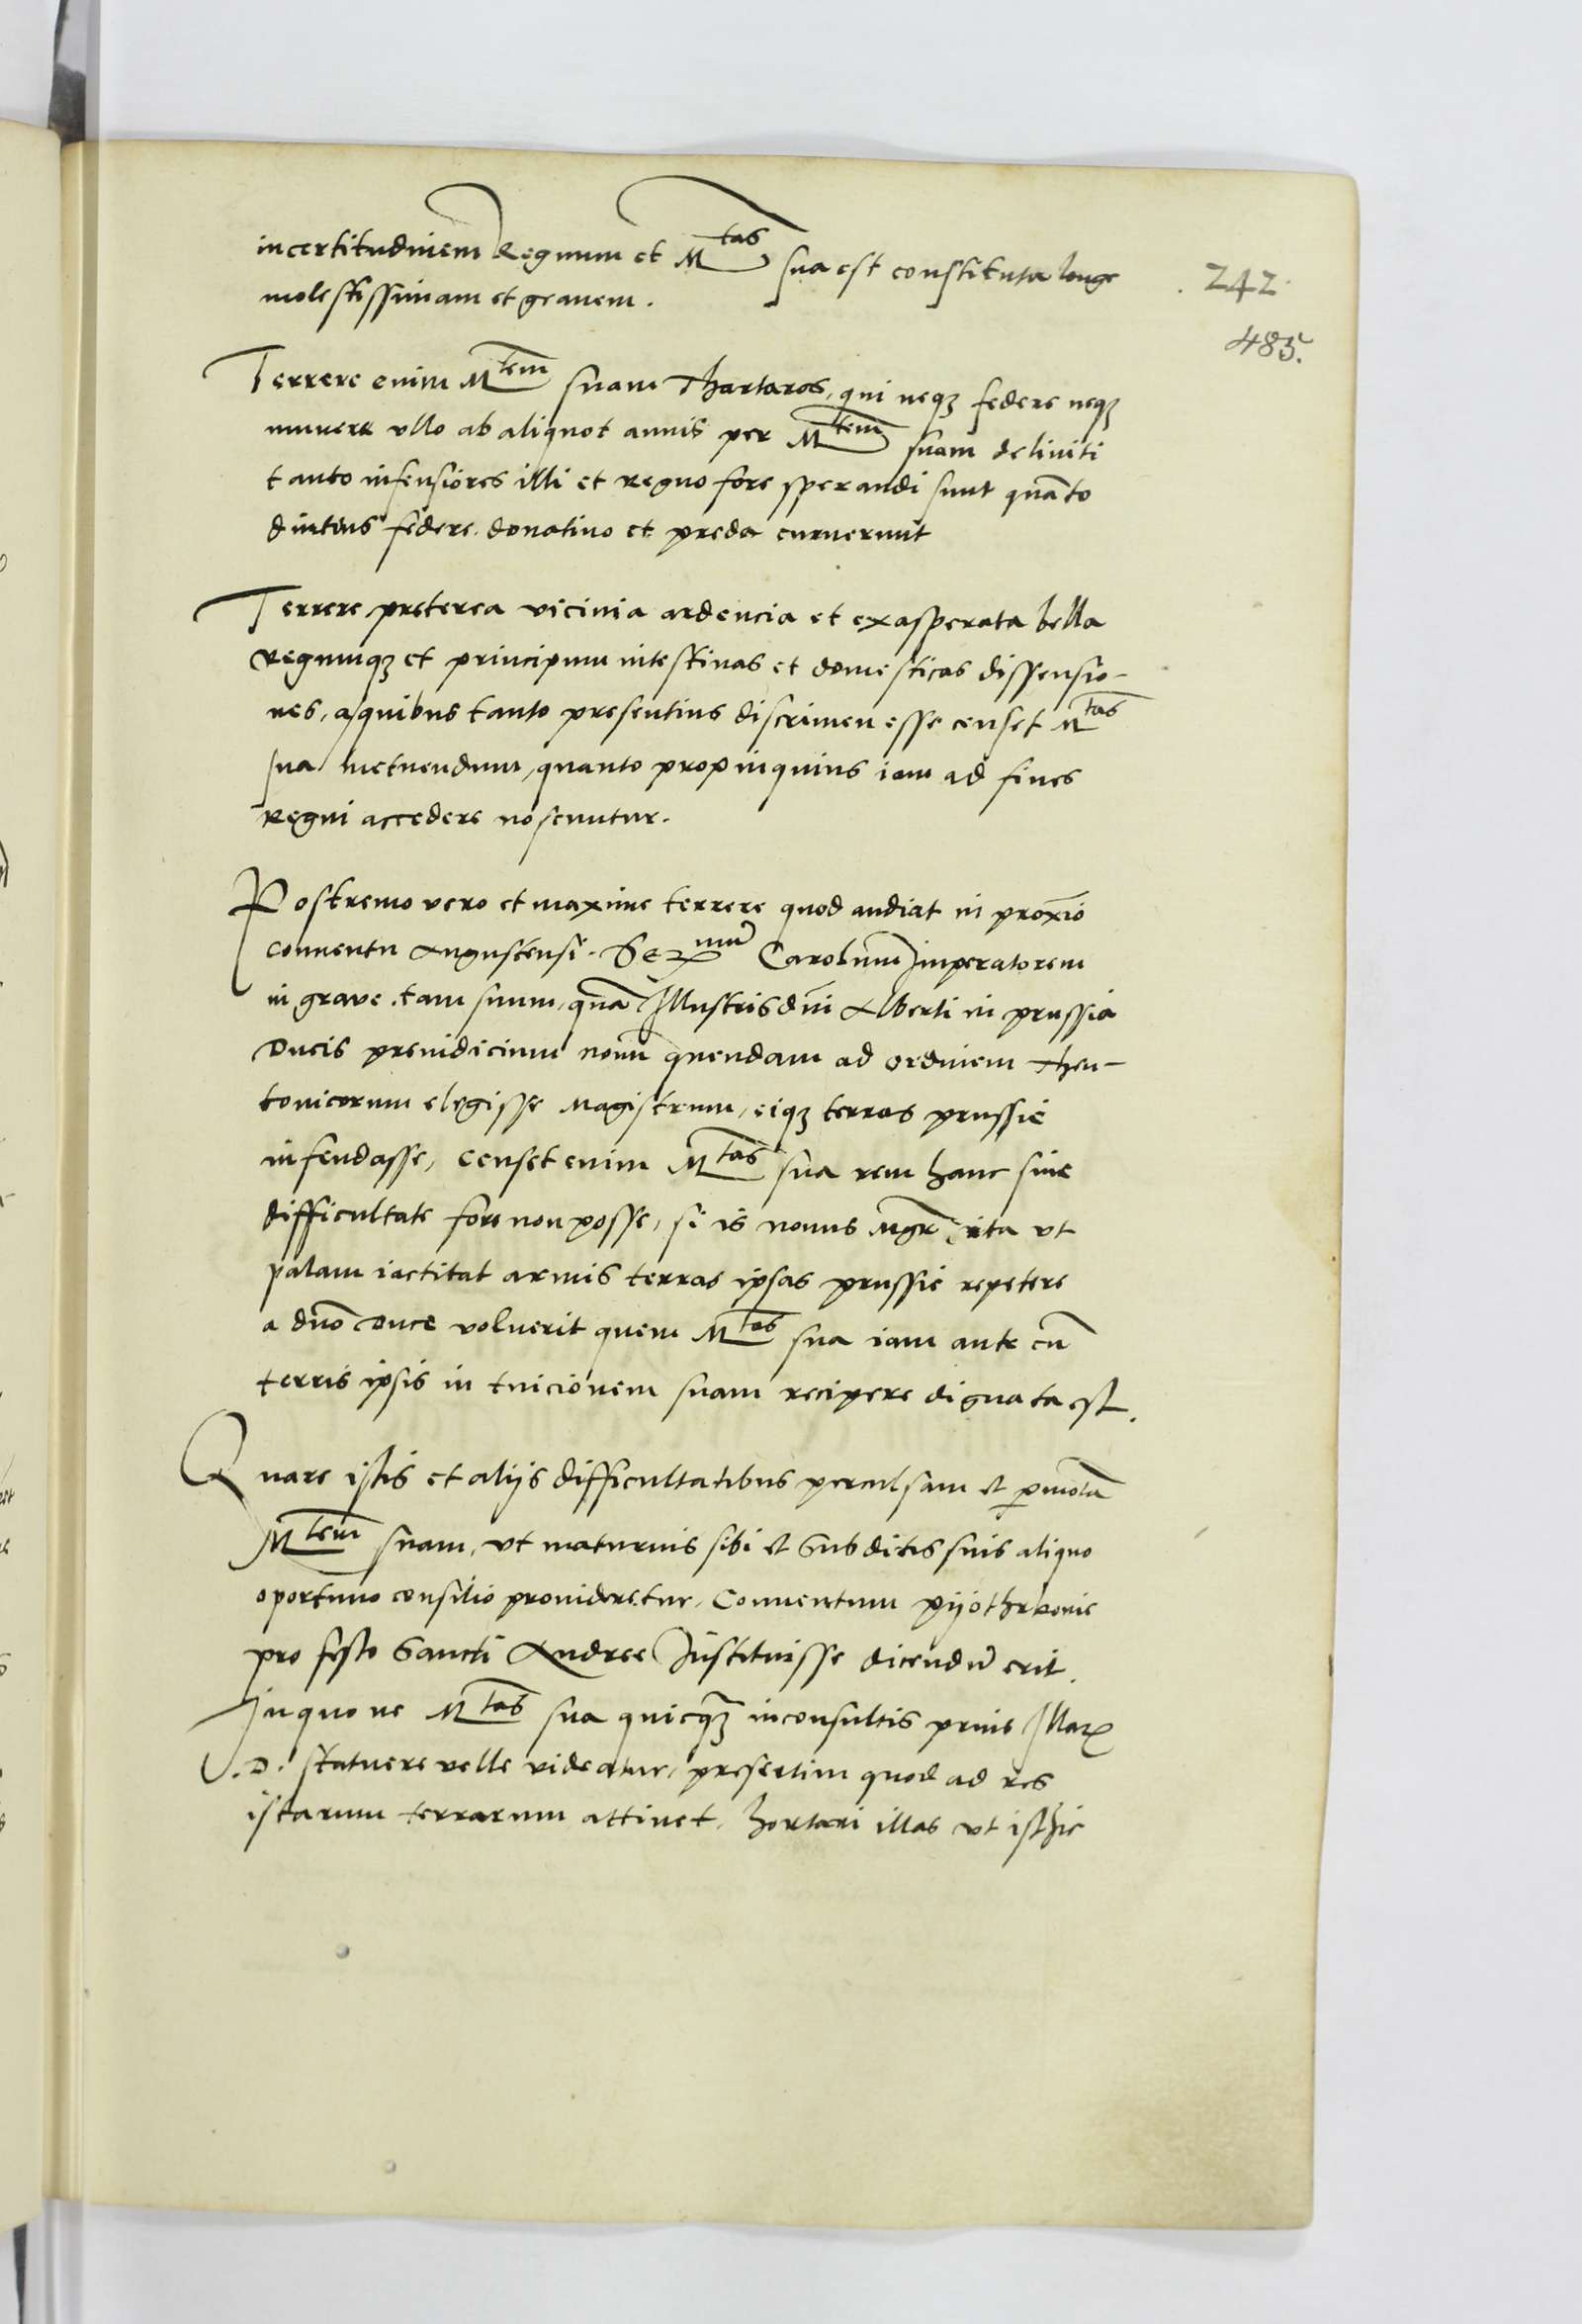 incertitudinem Regnum et M^tas sua est constituta longe
molestissimam et grauem.
242
485.
Terrere enim M^tem suam Thartaros, qui neq; federe neq;
munere vllo ab aliquot annis per M^tem suam deliniti
tanto infensiores illi et regno fore sperandi sunt quāto
diutius federe donatiuo et preda caruerunt
Terrere preterea vicinia ardencia et exasperata bella
regnumq; et principum intestinas et domesticas dissensio-
nes, a quibus tanto presentius discrimen esse censet M^tas
sua metuendum, quanto propinquius iam ad fines
regni accedere noscuntur.
Postremo vero et maxime terrere quod audiat in proxīo
conuentu Augustensi. Ser^mū Carolum Imperatorem
in graue tam suum, quā Illustris dn̄i Alberti in prussia
Ducis preiudicium nouū quendam ad ordinem Theu-
tonicorum elegisse Magistrum, eiq; terras prussie
infeudasse, Censet enim M^tas sua rem hanc sine
difficultate fore non posse, si is nouus Mgr̄ ita vt
palam iactitat armis terras ipsas prussie repetere
a dn̄o Duce voluerit quem M^tas sua iam ante cū
terris ipsis in tuicionem suam recipere dignata est.
Quare istis et alijs difficultatibus perculsam et p̄motā
M^tem suam, vt maturius sibi et Subditis suis aliquo
oportuno consilio prouideretur, Conuentum pijothrkouie
pro festo Sancti Andree Instituisse dicendū erit.
In quo ne M^tas sua quicq̄; inconsultis prius Illar
.D. statuere velle videatur, presertim quod ad res
istarum terrarum attinet, hortari illas vt isthic